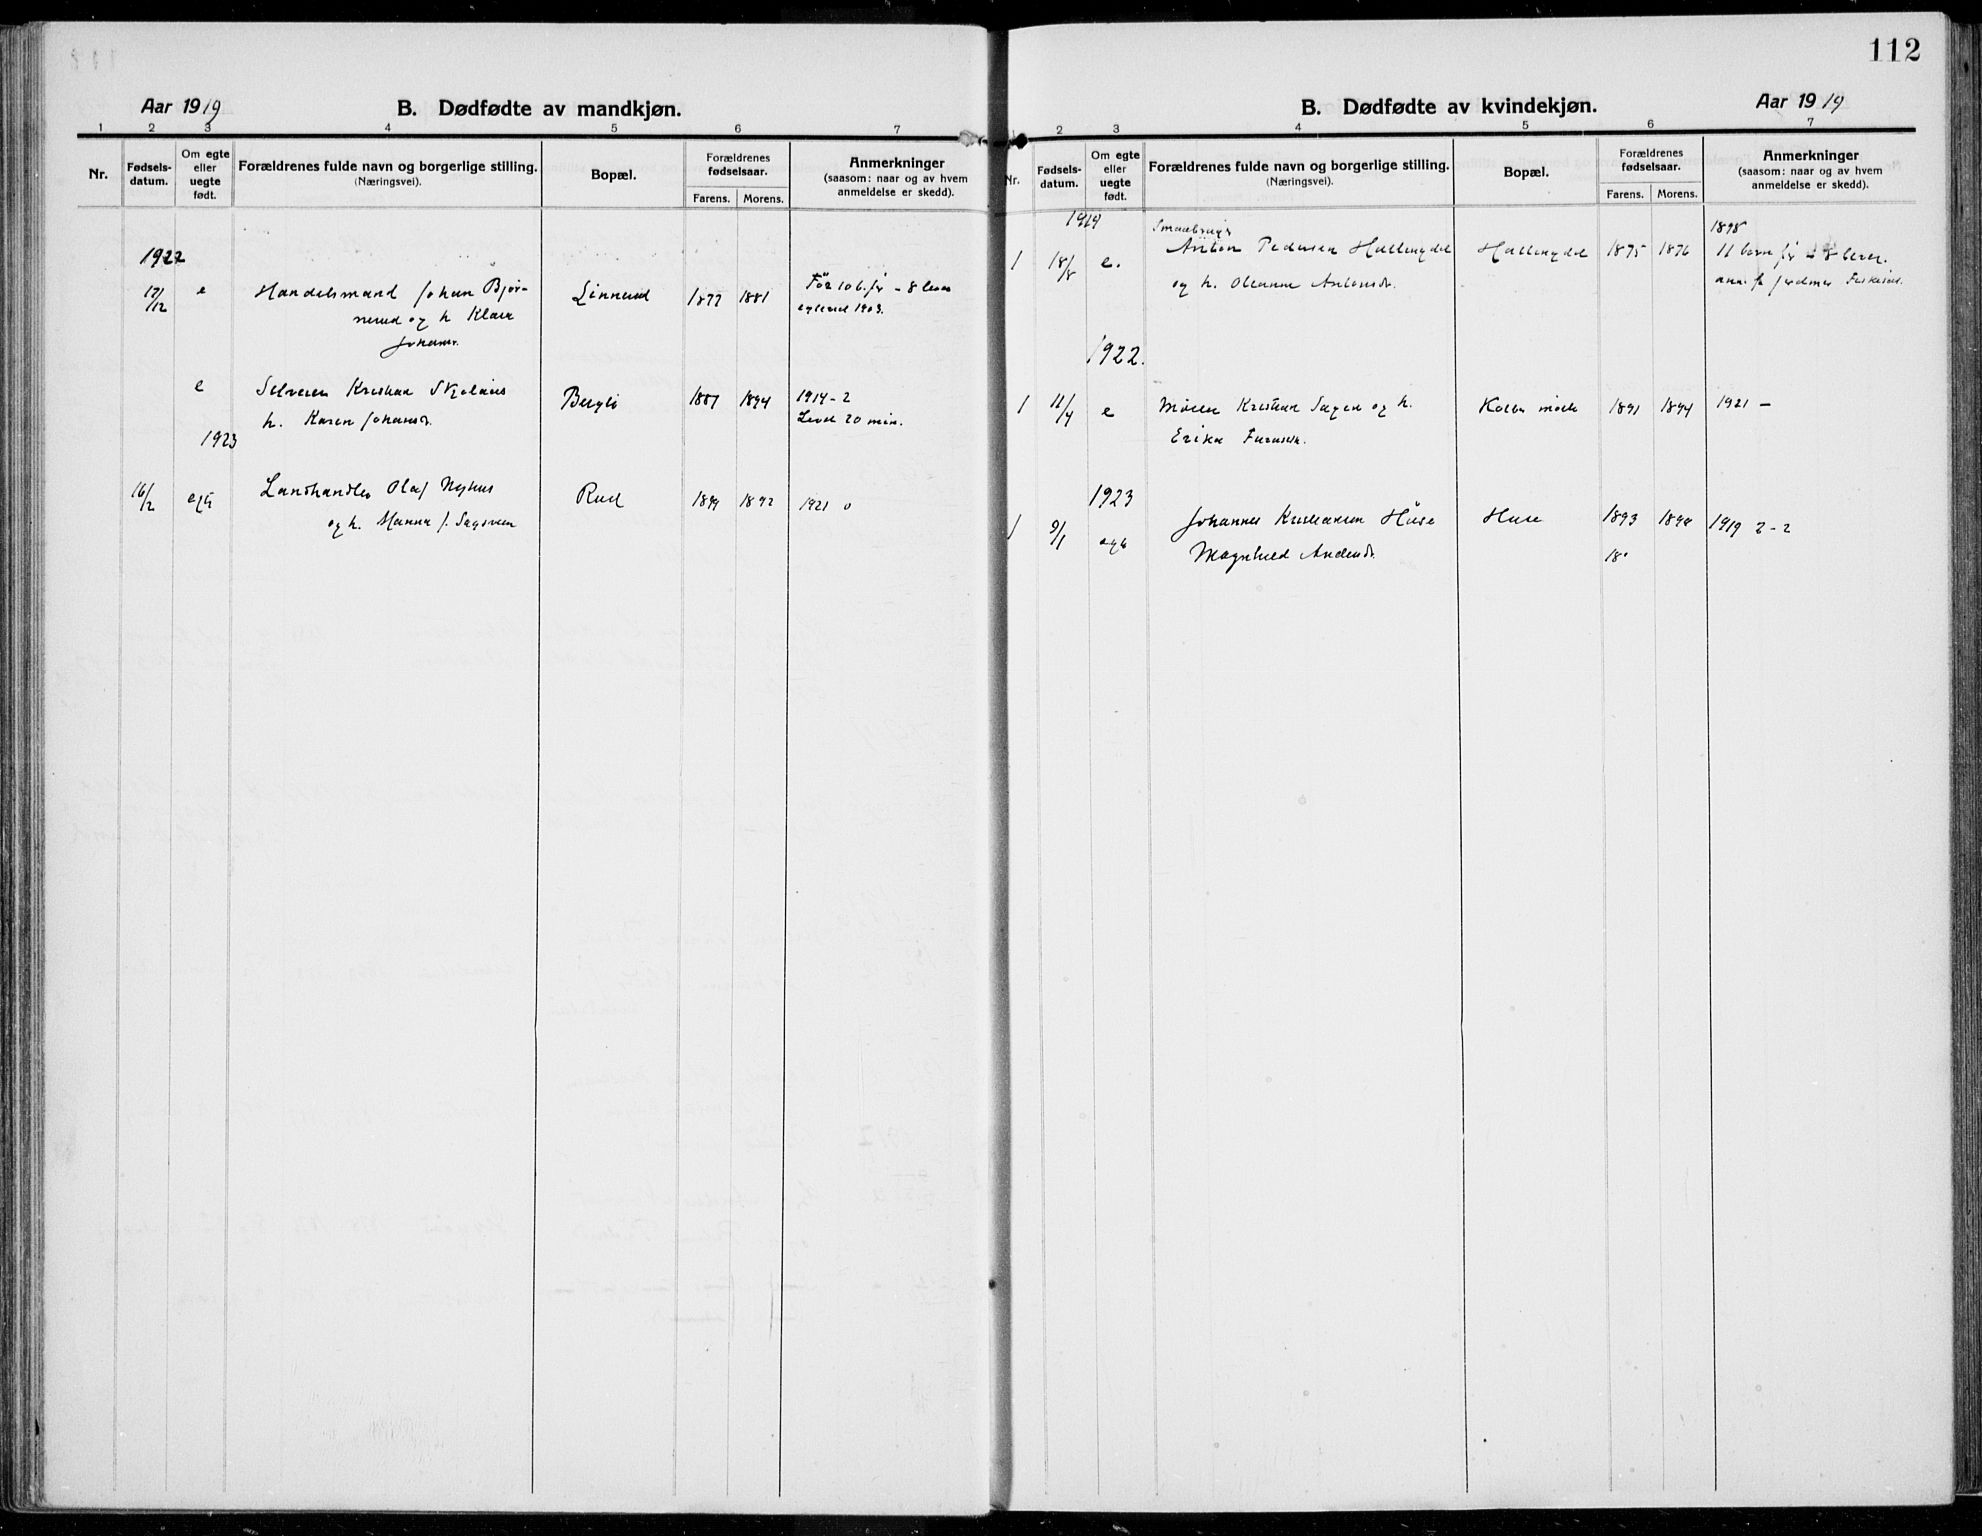 112
Aar 1919
B. Dødfødte av mandkjøn.
1 2 3 4 5 6 7
Nr.
Fødsels-
datum.
Om egte
eller
uegte
født.
Forældrenes fulde navn og borgerlige stilling.
(Næringsvei).
Bopæl.
Forældrenes
fødselsaar.
Farens. Morens.
Anmerkninger
(saasom: naar og av hvem
anmeldelse er skedd).
1922
17/12 e Handelsmand Johan Bjør- Linnerud 1877 1881 Før 10 b. før - 8 lever
nerud og h. Klara 1903.
Johans.
e Kristian Bergli 1887 1894 1914-2
h. Karen Johansdr. Levet 20 min.
1923
16/2 egte Landhandler Olaf Nyhus Rud 1899 1892 1921 0
og h. J. Sagsveen
B. Dødfødte av kvindekjøn.
Aar 1919
1 2 3 4 5 6 7
Nr.
Fødsels-
datum.
Om egte
eller
uegte
født.
Forældrenes fulde navn og borgerlige stilling.
(Næringsvei).
Bopæl.
Forældrenes
fødselsaar.
Farens. Morens.
Anmerkninger
(saasom: naar og av hvem
anmeldelse er skedd).
1919
Smaabruger 1898
1 18/8 e. Anton Pedersen 1875 1876 11 børn før 8 lever.
og h. Oleanna Antonsdr.
1922.
1 11/4 e Kristian Sagen og h. 1891 1894 1921 -
Erika
1923
1 9/1 egte Johannes Kristiansen Huse Huse 1893 1898 1919 2-2
Magnhild Andersdr. 18